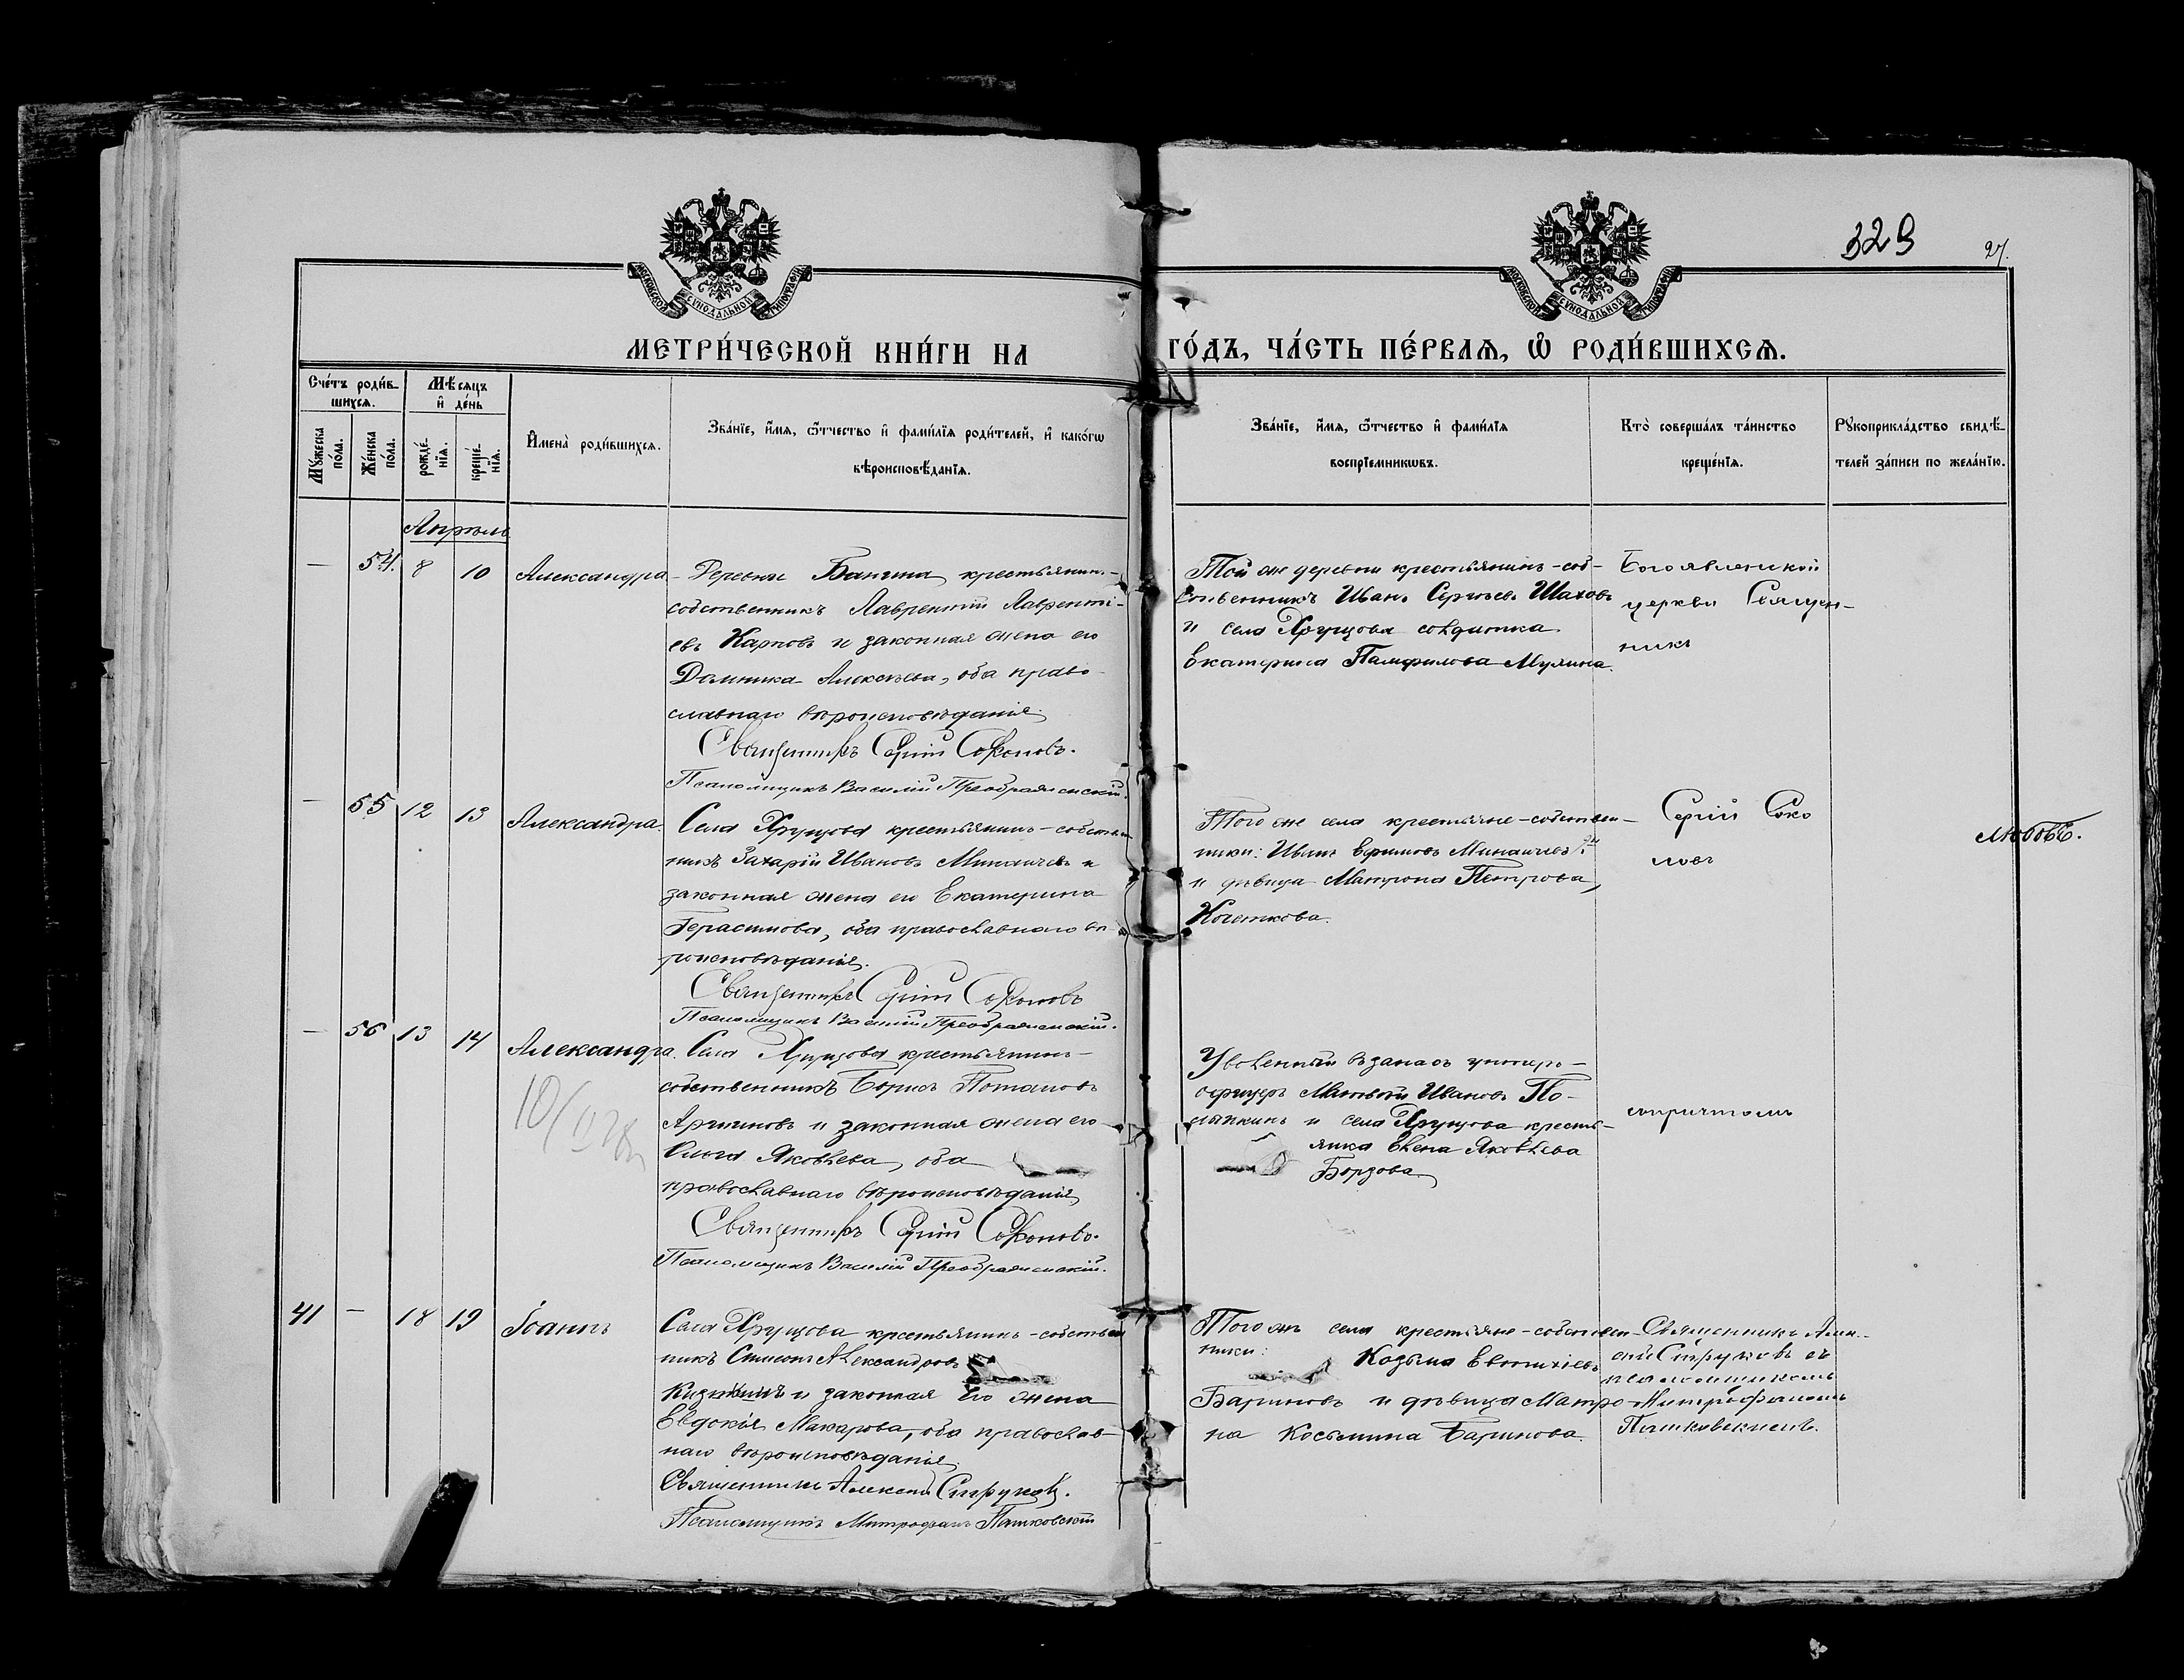 329
27.
МОСКОВСКОЙ СѴНОДАЛЬНОЙ ТИПОГРАФІИ
МОСКОВСКОЙ СѴНОДАЛЬНОЙ ТИПОГРАФІИ
МЕТРИ́ЧЕСКОЙ КНИ́ГИ НА ГО́ДЪ, ЧА́СТЬ ПЕ́РВАѦ, Ѿ РОДИ́ВШИХСѦ.
Сче́тъ роди́в-
шихсѧ.
Мꙋ́жеска по́ла.
Же́нска по́ла.
Мѣ́сяцъ
и҆ де́нь
рожде́-
нїѧ.
креще́-
нїѧ.
И҆мена̀ роди́вшихсѧ.
Зва́нїе, и҆́мѧ, ѻ҆́тчество и҆ фами́лїѧ роди́телей, и҆ како́гѡ
вѣроисповѣ́данїѧ.
Зва́нїе, и҆́мѧ, ѻ҆́тчество и҆ фами́лїѧ
воспрїе́мникѡвъ.
Кто̀ соверша́лъ та́инство
креще́нїѧ.
Рꙋкоприкла́дство свидѣ́-
телей за́писи по жела́нїю.
Апрѣль
— 54. 8 10 Александра
Деревни крестьянин-
собственникъ Лаврентій Лавренті-
евъ Карповъ и законная жена его
Домника Алексѣева, оба право-
славнаго вѣроисповѣданія.
Священникъ Сергій Соколовъ.
Псаломщикъ Василій Преображенскій.
Той же деревни крестьянинъ-соб-
ственникъ Иванъ Сергѣевъ Шаховъ
и села Хрущова солдатка
Екатерина Памфилова Мулина.
Богоявленской
церкви Священ-
никъ
— 55 12 13 Александра.
Села Хрущова крестьянинъ-собствен
никъ Захарій Ивановъ Минаичевъ и
законная жена его Екатерина
Герасимова, оба православнаго вѣ-
роисповѣданія.
Священникъ Сергій Соколовъ
Псаломщикъ Василій Преображенскій.
Того же села крестьяне-собствен-
ники: Иванъ Ефимовъ Минаичевъ
и дѣвица Матрона Петрова,
Кочеткова.
Сергій Соко
ловъ
Любовь.
— 56 13 14 Александра.
Села Хрущова крестьянинъ-
собственникъ Борисъ Потаповъ
и законная жена его
Ольга Яковлева, оба
православнаго вѣроисповѣданія
Священникъ Сергій Соколовъ.
Псаломщикъ Василій Преображенскій.
Уволенный въ запасъ унтеръ-
офицеръ Матвѣй Ивановъ По-
и села Хрущова кресть-
янка Елена Яковлева
Борзова
съ причтомъ
41 — 18 19 Іоаннъ
Села Хрущова крестьянинъ-собствен
никъ Симеонъ Александровъ
и законная его жена
Евдокія Макарова, оба православ-
наго вѣроисповѣданія
Священникъ Алексѣй Струковъ.
Псаломщикъ Митрофанъ Пашковскій
Того же села крестьяне-собствен-
ники: Козьма Евтихіевъ
Бариновъ и дѣвица Матро-
на Косьмина Баринова.
Священникъ Алек-
сѣй Струковъ съ
псаломщикомъ
Митрофаномъ
Пашковскимъ.